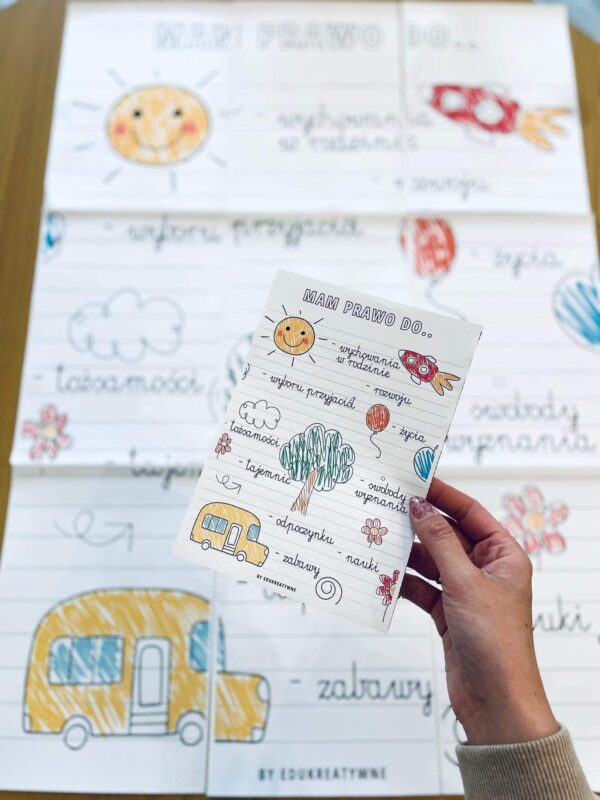 MAM PRAWO DO..
- wychowania
w rodzinie
- rozwoju
- wyboru przyjaciół
- życia
- tożsamości
swobody
wyznania
- zabawy
BY EDUKREATYWNE
MAM PRAWO DO..
- wychowania
w rodzinie
- rozwoju
- wyboru przyjaciół
- życia
- tożsamości
- tajemnic
- swobody
wyznania
- odpoczynku
- nauki
- zabawy
BY EDUKREATYWNE